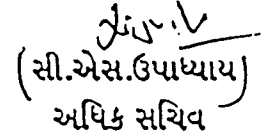 (સી.એસ.ઉપાધ્યાય)
અધિક સચિવ